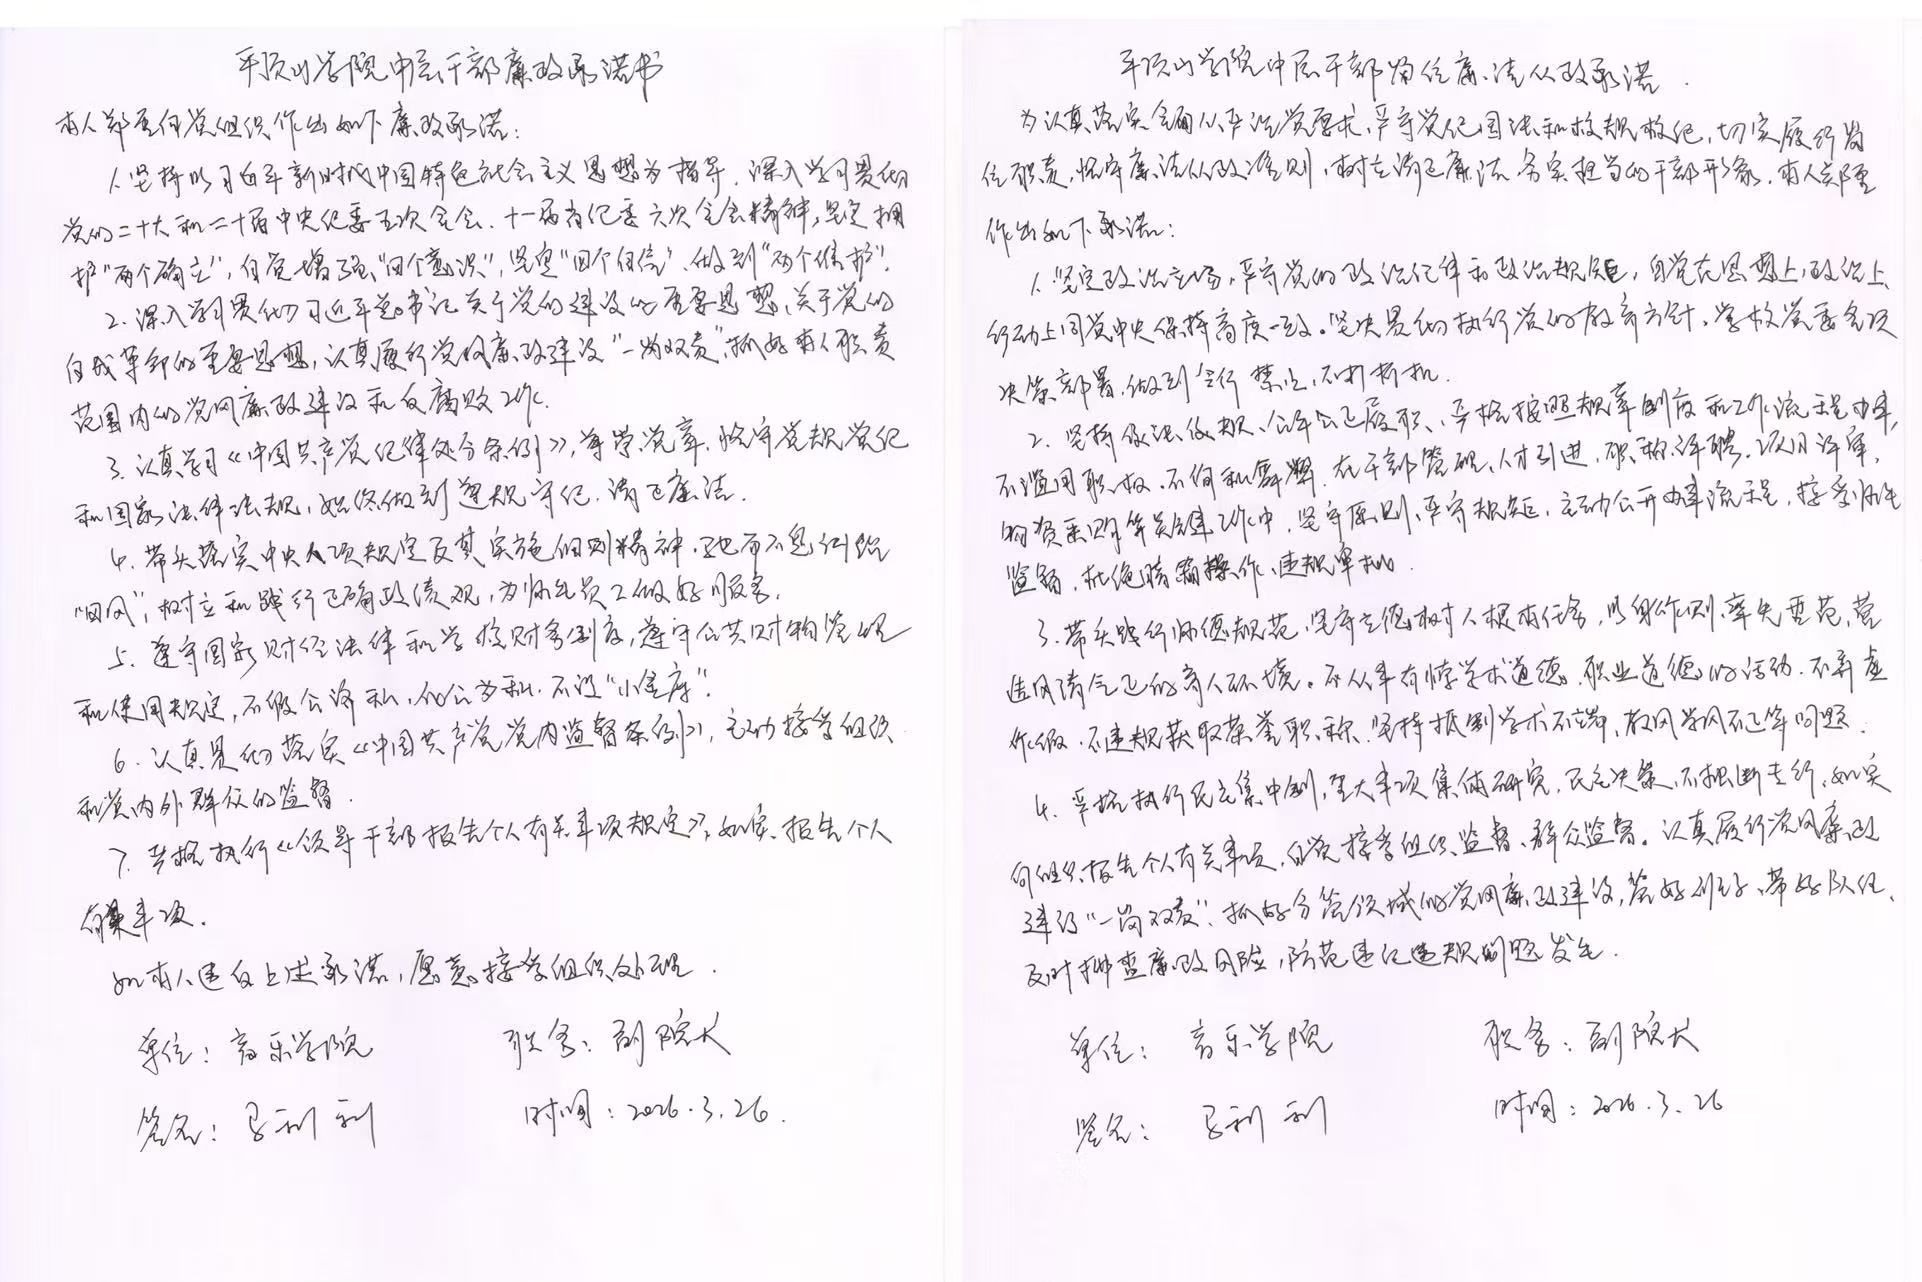 平顶山学院中层干部廉政承诺书
本人郑重向党组织作出如下廉政承诺：
1.坚持以习近平新时代中国特色社会主义思想为指导，深入学习贯彻
党的二十大和二十届中央纪委五次全会、十一届省纪委六次全会精神，坚定拥
护“两个确立”，自觉增强“四个意识”，坚定“四个自信”、做到“两个维护”。
2.深入学习贯彻习近平总书记关于党的建设的重要思想、关于党的
自我革命的重要思想，认真履行党风廉政建设“一岗双责”，抓好本人职责
范围内的党风廉政建设和反腐败工作。
3.认真学习《中国共产党纪律处分条例》，尊崇党章，恪守党规党纪
和国家法律法规，始终做到遵规守纪、清正廉洁。
4.带头落实中央八项规定及其实施细则精神，驰而不息纠治
“四风”，树立和践行正确政绩观，为师生员工做好服务。
5.遵守国家财经法律和学校财务制度，遵守公共财物管理
和使用规定，不假公济私，化公为私，不设“小金库”。
6.认真贯彻落实《中国共产党党内监督条例》，主动接受组织
和党内外群众的监督。
7.严格执行《领导干部报告个人有关事项规定》，如实报告个人
有关事项。
如本人违反上述承诺，愿意接受组织处理。
单位：音乐学院 职务：副院长
签名：马利利 时间：2026.3.26.
平顶山学院中层干部岗位廉洁从政承诺.
为认真落实全面从严治党要求，严守党纪国法和校规校纪，切实履行岗
位职责，恪守廉洁从政准则，树立清正廉洁、务实担当的干部形象，本人郑重
作出如下承诺：
1.坚定政治立场，严守党的政治纪律和政治规矩，自觉在思想上，政治上、
行动上同党中央保持高度一致。坚决贯彻执行党的教育方针，学校党委各项
决策部署，做到令行禁止，不打折扣.
2.坚持依法依规、公平公正履职、严格按照规章制度和工作流程办事，
不滥用职权、不徇私舞弊.在干部管理，人才引进，职称评聘，项目评审，
物资采购等关键工作中，坚守原则，严守规矩，主动公开办事流程，接受师生
监督，杜绝暗箱操作、违规审批.
3.带头践行师德规范，坚守立德树人根本任务，以身作则，率先垂范，营
造风清气正的育人环境。不从事有悖学术道德、职业道德的活动.不弄虚
作假、不违规获取荣誉职称.坚持抵制学术不端，教风学风不正等问题.
4.严格执行民主集中制，重大事项集体研究，民主决策，不独断专行，如实
向组织报告个人有关事项，自觉接受组织监督、群众监督。认真履行党风廉政
建设“一岗双责”，抓好分管领域的党风廉政建设，管好班子、带好队伍，
及时排查廉政风险，防范违纪违规问题发生.
单位：音乐学院 职务：副院长
签名：马利利 时间：2026.3.26